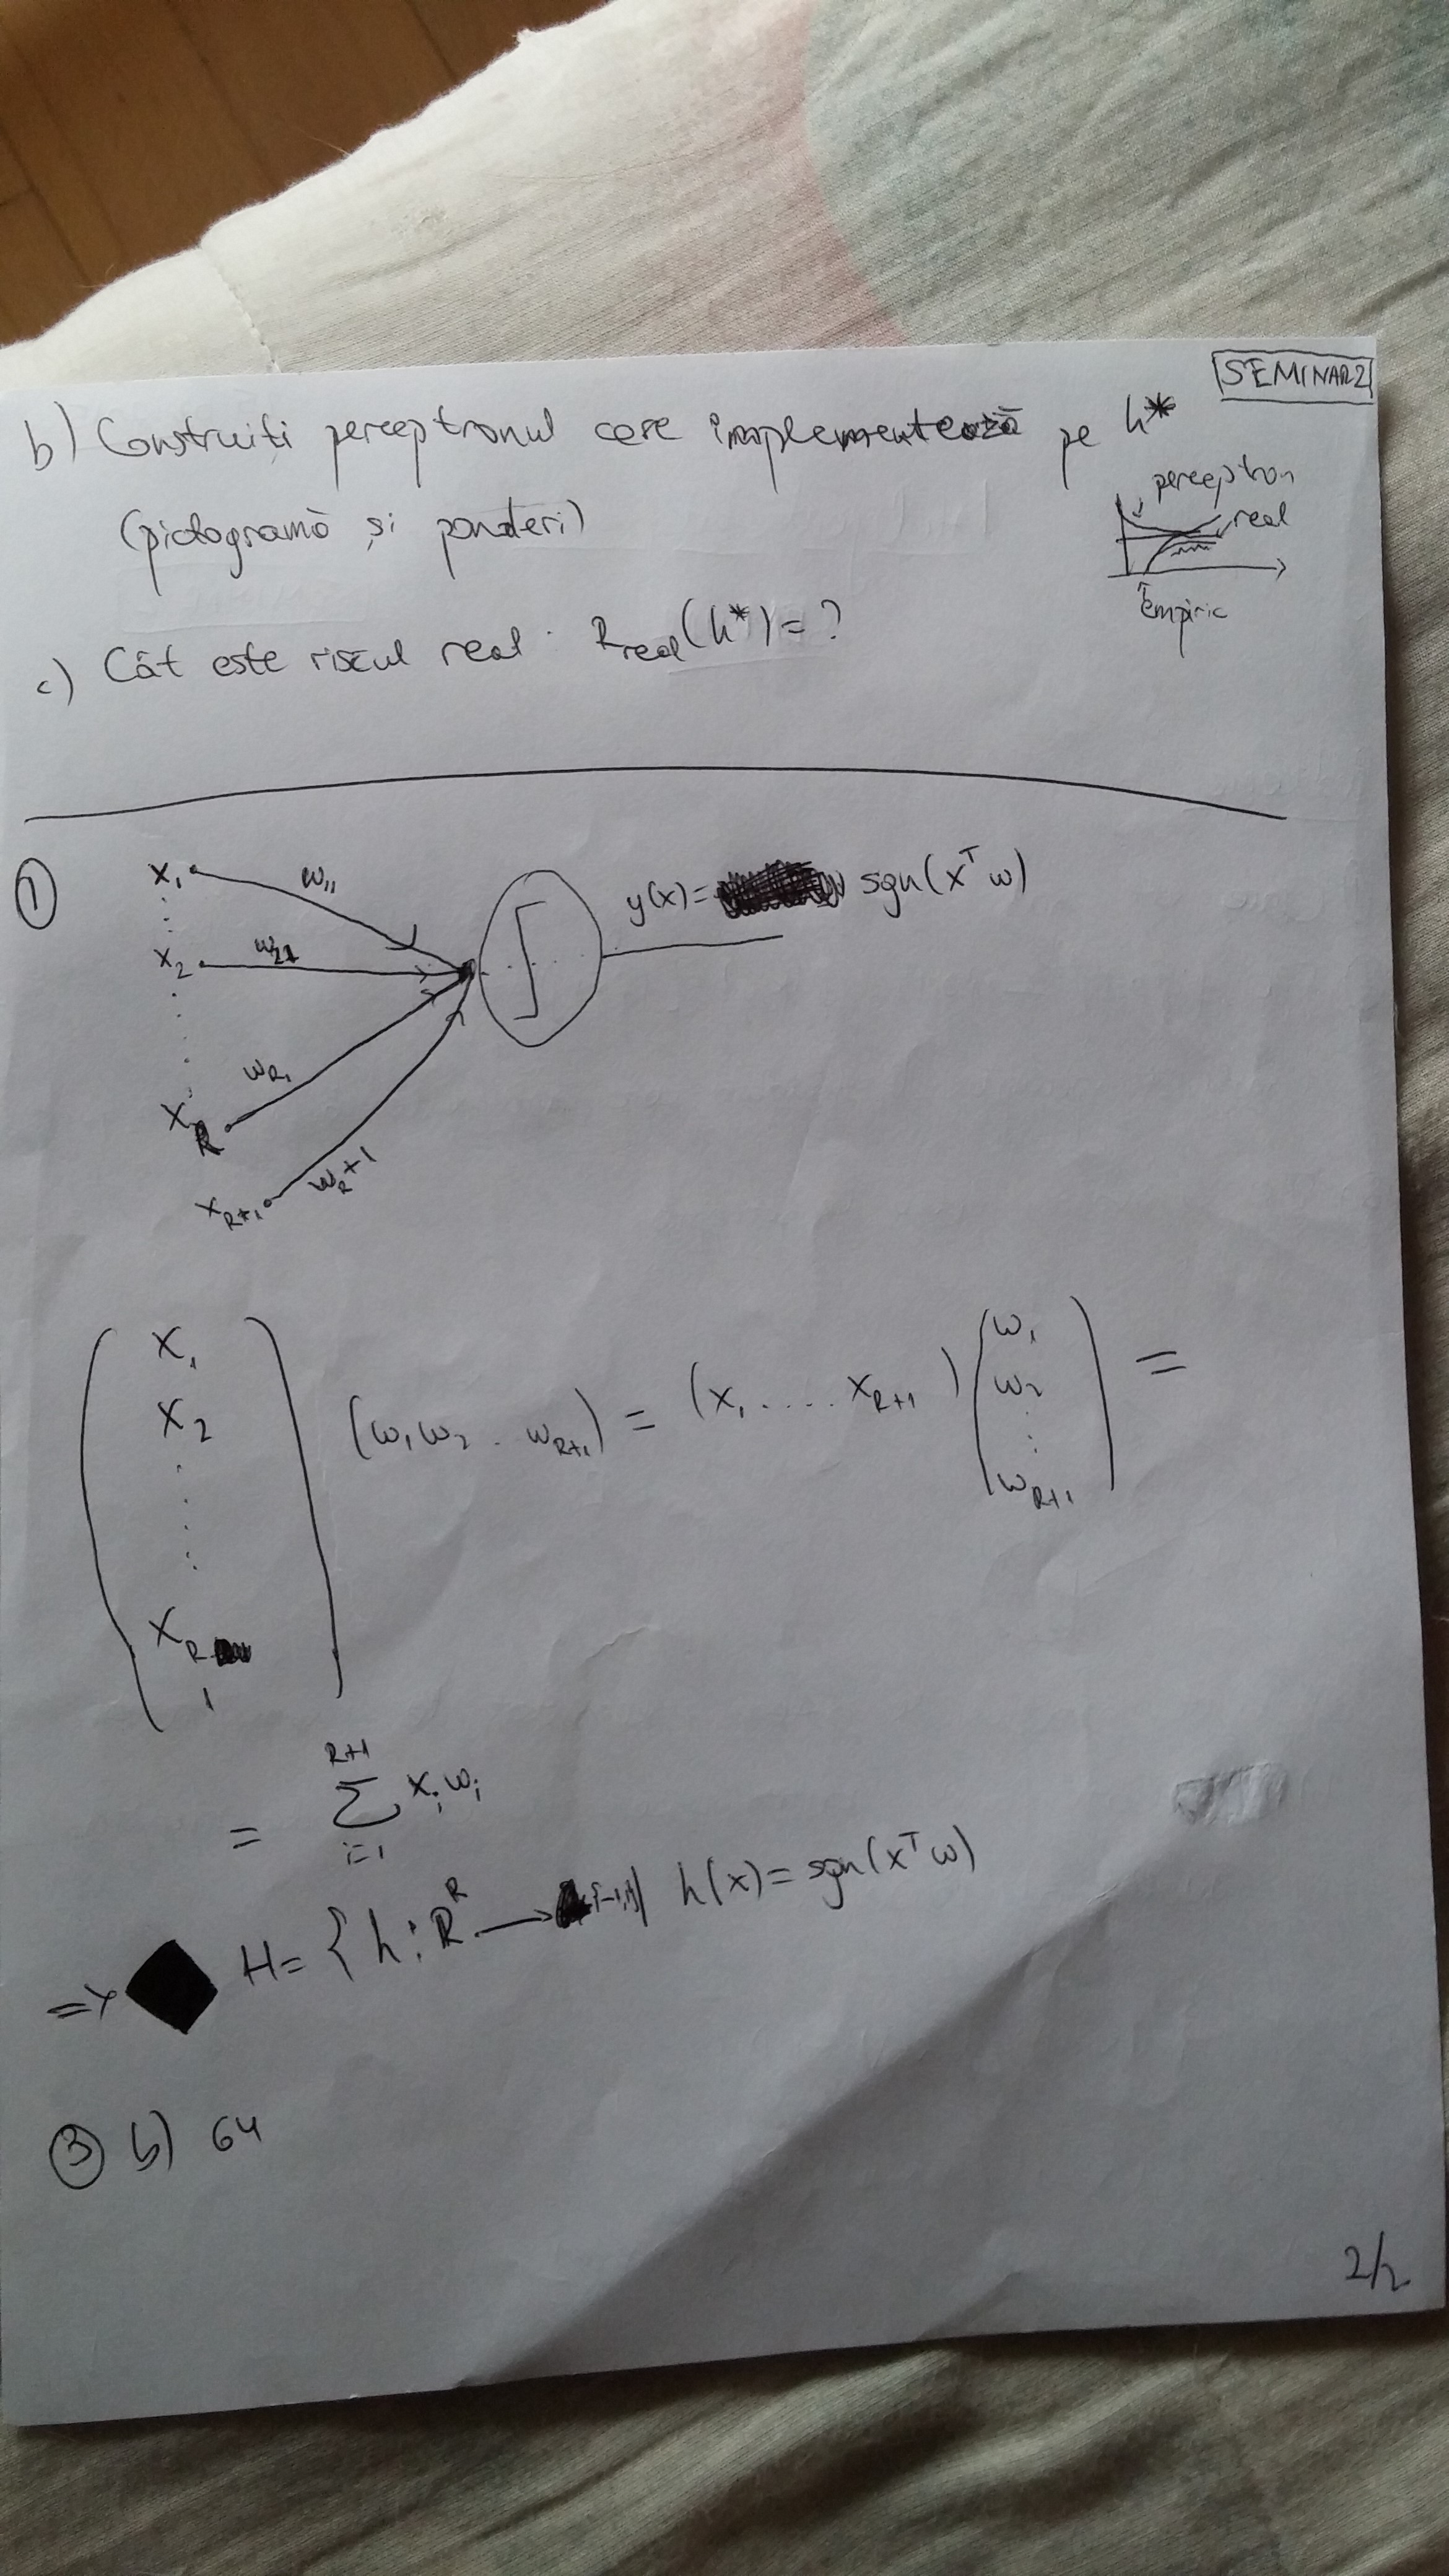 SEMINAR 2
b) Construiți perceptronul care implementează pe h*
(pictogramă și ponderi)
perceptron
real
Empiric
c) Cât este riscul real : R_real(h*) = ?
①
x₁ w₁₁
x₂ w₂₁
x_R w_R₁
x_R+1 w_R+1
y(x) = sgn(xᵀw)
(x₁ x₂ ⋮ x_R 1) (w₁ w₂ .. w_R+1) = (x₁ .... x_R+1) (w₁ w₂ ⋮ w_R+1) =
= Σ_{i=1}^{R+1} xᵢ wᵢ
=> H = { h : ℝ^R → {-1,1} | h(x) = sgn(xᵀw)
③ b) 64
2/2